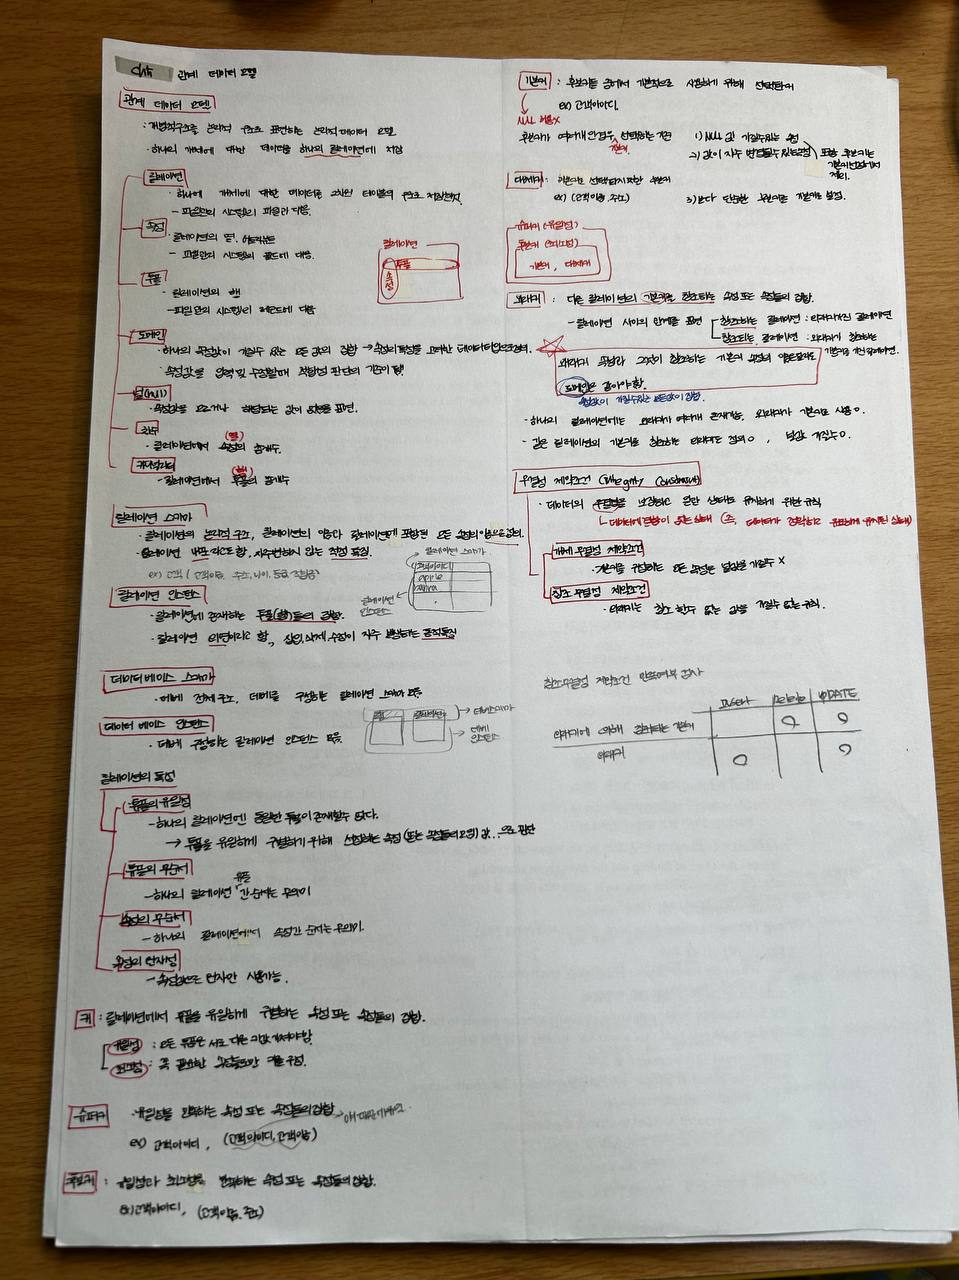 ch5 관계 데이터 모델
관계 데이터 모델
· 개념적 구조를 논리적 구조로 표현하는 논리적 데이터 모델
· 하나의 개체에 대한 데이터를 하나의 릴레이션에 저장
릴레이션
· 하나의 개체에 대한 데이터를 2차원 테이블의 구조로 저장한것
- 파일관리 시스템의 파일과 대응.
속성
· 릴레이션의 열,
- 파일관리 시스템의 필드에 대응.
튜플
· 릴레이션의 행
- 파일관리 시스템의 레코드에 대응
릴레이션
튜플
속성
도메인
· 하나의 속성값이 가질수 있는 모든 값의 집합 → 속성의 특성을 고려한 데이터타입으로정의.
· 속성값을 입력 및 수정할때 적합성 판단의 기준이 됨
널(null)
· 속성값을 모르거나 해당되는 값이 없음을 표현.
차수
(열)
· 릴레이션에서 속성의 총개수.
카디널리티
(행)
- 릴레이션에서 튜플의 총개수
릴레이션 스키마
· 릴레이션의 논리적 구조, 릴레이션의 이름과 릴레이션에 포함된 모든 속성의 이름으로 정의.
· 릴레이션 내포 라고도 함, 자주변하지 않는 정적 특징.
ex) 고객 ( 고객이름, 주소, 나이, 등급, 적립금)
릴레이션 스키마
고객아이디
apple
릴레이션
인스턴스
릴레이션 인스턴스
· 릴레이션에 존재하는 튜플(행)들의 집합.
· 릴레이션 외연이라고 함, 삽입, 삭제, 수정이 자주 발생하는 동적특징
데이터 베이스 스키마
· 데베 전체구조, 데베를 구성하는 릴레이션 스키마 모음
데이터 베이스 인스턴스
· 데베 구성하는 릴레이션 인스턴스 모음.
릴레이션
데베스키마
데베
인스턴스
릴레이션의 특성
튜플의 유일성
- 하나의 릴레이션엔 동일한 튜플이 존재할수 없다.
→ 튜플을 유일하게 구별하기 위해 선정하는 속성 (또는 속성들의 모임) 값..으로 판단
튜플의 무순서
튜플
- 하나의 릴레이션 간 순서는 무의미
속성의 무순서
- 하나의 릴레이션에서 속성간 순서는 무의미.
속성의 원자성
- 속성값으로 원자만 사용가능.
키 : 릴레이션에서 튜플을 유일하게 구별하는 속성 또는 속성들의 집합.
유일성 : 모든 튜플은 서로 다른 키값 가져야함.
최소성 : 꼭 필요한 속성들로만 키를 구성.
슈퍼키 유일성을 만족하는 속성 또는 속성들의 집합
ex) 고객아이디, (고객아이디, 고객이름)
후보키 : 유일성과 최소성을 만족하는 속성 또는 속성들의 집합.
ex) 고객아이디, (고객이름, 주소)
기본키 : 후보키들 중에서 기본적으로 사용하기 위해 선택한키
ex) 고객아이디.
NULL 허용X
후보키가 여러개 인경우, 선택하는 기준
기본키
1) NULL 값 가질수있는 속성
2) 값이 자주 변경될수있는속성
포함 후보키는
기본키선정에서
제외.
3) 보다 단순한 후보키를 기본키로 설정.
대체키 : 기본키로 선택되지못한 후보키
ex) (고객이름, 주소)
슈퍼키 (유일성)
후보키 (최소성)
기본키, 대체키
외래키 : 다른 릴레이션의 기본키를 참조하는 속성 또는 속성들의 집합.
- 릴레이션 사이의 관계를 표현
참조하는 릴레이션 : 외래키가진 릴레이션
참조되는 릴레이션 : 외래키가 참조하는
기본키를 가진 릴레이션.
외래키 속성과 그것이 참조하는 기본키 속성의 이름은달라도
도메인은 같아야 함.
속성값이 가질수있는 모든값의 집합.
· 하나의 릴레이션에는 외래키가 여러개 존재가능. 외래키가 기본키로 사용 O.
- 같은 릴레이션의 기본키를 참조하는 외래키도 정의 O, 널값 가질수 O.
무결성 제약조건 (Integrity Constraint)
· 데이터의 무결성을 보장하고 일관 상태로 유지하기 위한 규칙
↳ 데이터에 결함이 없는 상태 (즉, 데이터가 정확하고 유효하게 유지된 상태)
개체 무결성 제약조건
· 기본키를 구성하는 모든 속성은 널값을 가질수 X
참조 무결성 제약조건
· 외래키는 참조 할수 없는 값을 가질수 없는 규칙.
참조무결성 제약조건 만족여부 검사
Insert Delete UPDATE
외래키에 의해 참조되는 기본키 O O
외래키 O O